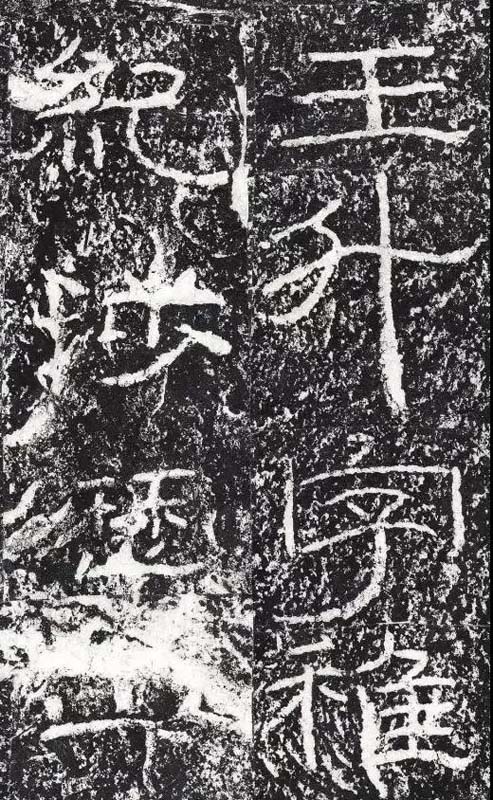 王升字稚
紀涉